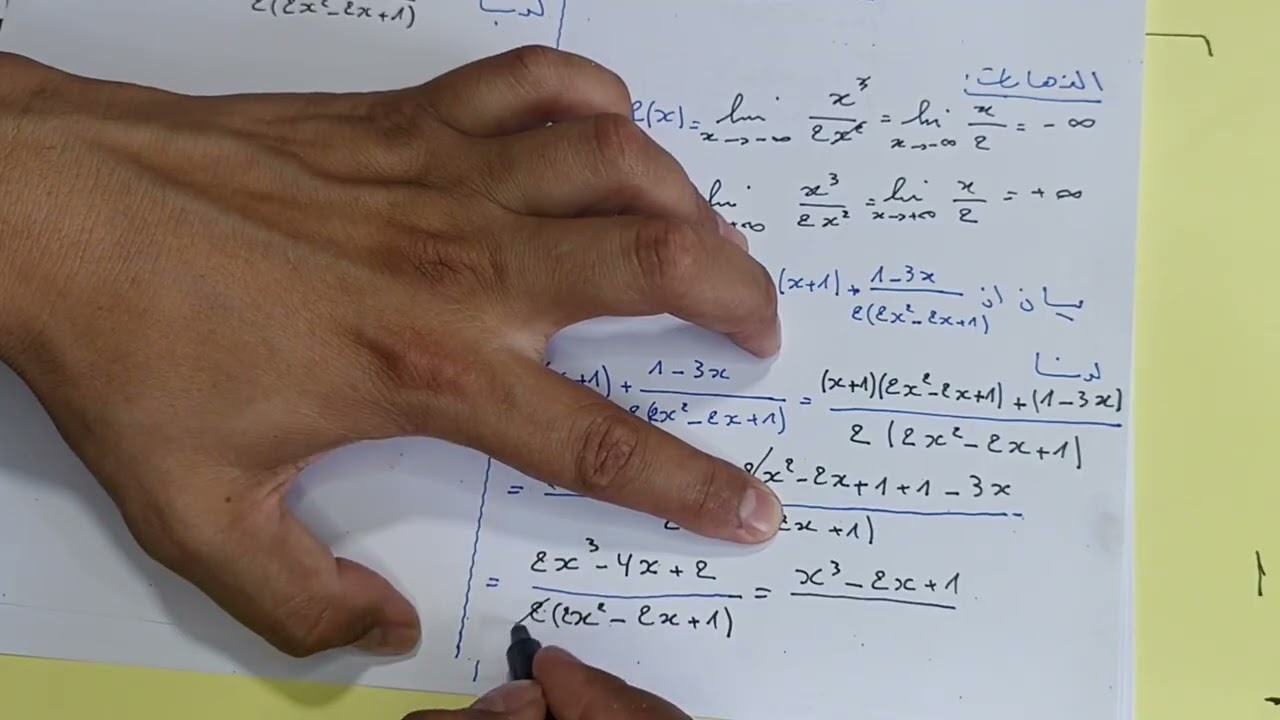 2(2x²-2x+1)
لدينا
النهايات:
(x) = lim x→-∞ x³/2x² = lim x→-∞ x/2 = -∞
lim +∞ x³/2x² = lim x→+∞ x/2 = +∞
بيان ان (x+1) + 1-3x/2(2x²-2x+1)
لدينا
+1) + 1-3x/2(2x²-2x+1) = (x+1)(2x²-2x+1)+(1-3x)/2(2x²-2x+1)
= x²-2x+1+1-3x/2x+1)
= 2x³-4x+2/2(2x²-2x+1) = x³-2x+1